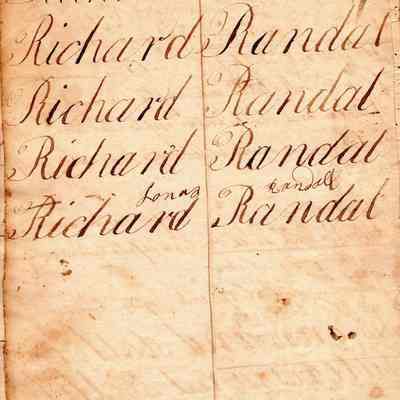 Richard Randal
Richard Randal
Richard Randal
Jonas Randall
Richard Randal